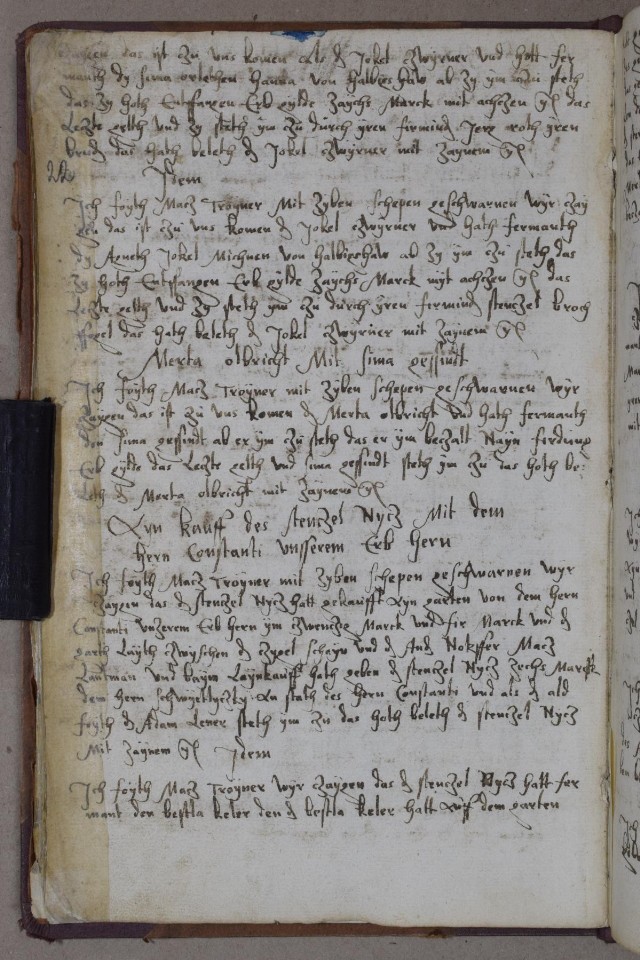 das ist zu vns komen d Jokel czwyrner vnd hott fer
manth dy sima hanna von halbieshaw ab zy ym czu steth
das zy hoth Entsfangen Erb gylde Zaychs Marck mit achczen gl das
Leczte gelth vnd zy steth ym zu durch yren firmind Jerz roth yren
brud das hath beleth d Jokel czwyrner mit Zaynem gl
22 Idem
Ich foyth Macz Troyner Mit Zyben schepen geschwarnen wyr Zay
gen das ist czu vns komen d Jokel czwyrner vnd hath fermanth
dy Agneth Jokel Michnen von halbieshaw ab zy ym czu steth das
Zy hoth Entsfangen Erb gylde Zaychs Marck myt achczen gl das
Leczte gelth vnd Zy steth ym czu durch yren firmind stenczel broch
das hath beleth d Jokel czwyrner mit Zaynem gl
Merta olbricht Mit sima gessindt
Ich foyth Macz Troyner mit Zyben schepen geschwarnen wyr
Zaygen das ist zu vns komen d Merta olbricht vnd hath fermanth
den sima gessindt ab er ym zu steth das er ym beczalt Nayn firdung
Erb gylde das Leczte gelth vnd sima gessindt steth ym zu das hoth be:
leth d Merta olbricht mit Zaynem gl
Ayn kauff des stenczel Nycz Mit dem
hern Constanti vnsserem Erb hern
Ich foyth Macz Troyner mit Zyben schepen geschwarnen wyr
Zaygen das d stenczel Nycz hatt gekaufft Ayn garten von dem hern
Constanti vnzerem Erb hern ym zwenczig Marck vnd fir Marck vnd d
garth Layth zwyschen d Zygel schayn vnd d And Nokffer Macz
Lantman vnd baym Laynkauff hath geben d stenczel Nycz Zechs Marck
dem hern schwyettyczky An stath des hern Constanti vnd als d ald
foyth d Adam Lener steth ym zu das hoth beleth d stenczel Nycz
Mit Zaynem gl Idem
Ich foyth Macz Troyner wyr Zaygen das d stenczel Nycz hatt fer
mant den bestla keler den d bestla keler hatt Auff dem garten